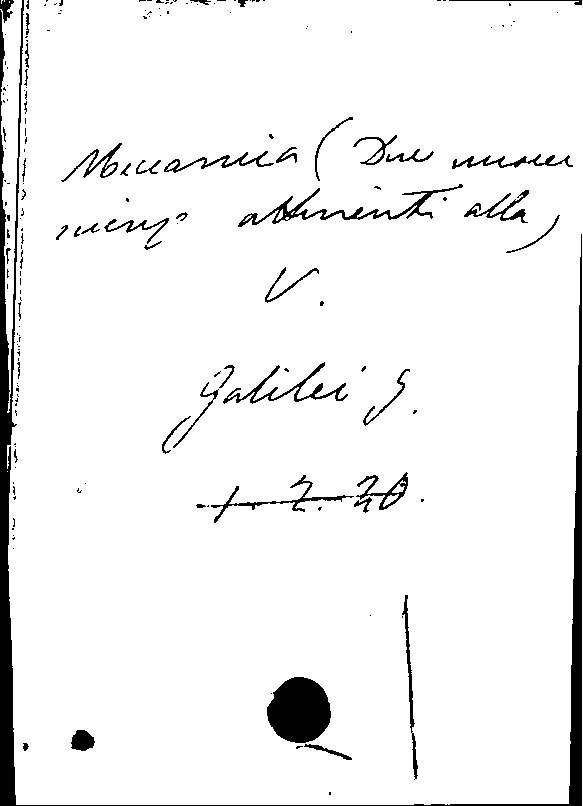 Meccanica (Due nuove
scienze attinenti alla)
V.
Galilei G.
1. 2. 20.